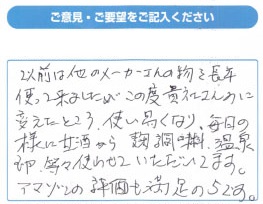 ご意見・ご要望をご記入ください
以前は他のメーカーさんの物を長年
使って来ましたが この度貴社さんのに
変えたところ、使い易くなり、毎日の
様に甘酒から 麹調味料、温泉
卵、等々使わせていただいてます。
アマゾンの評価も満足の5です。